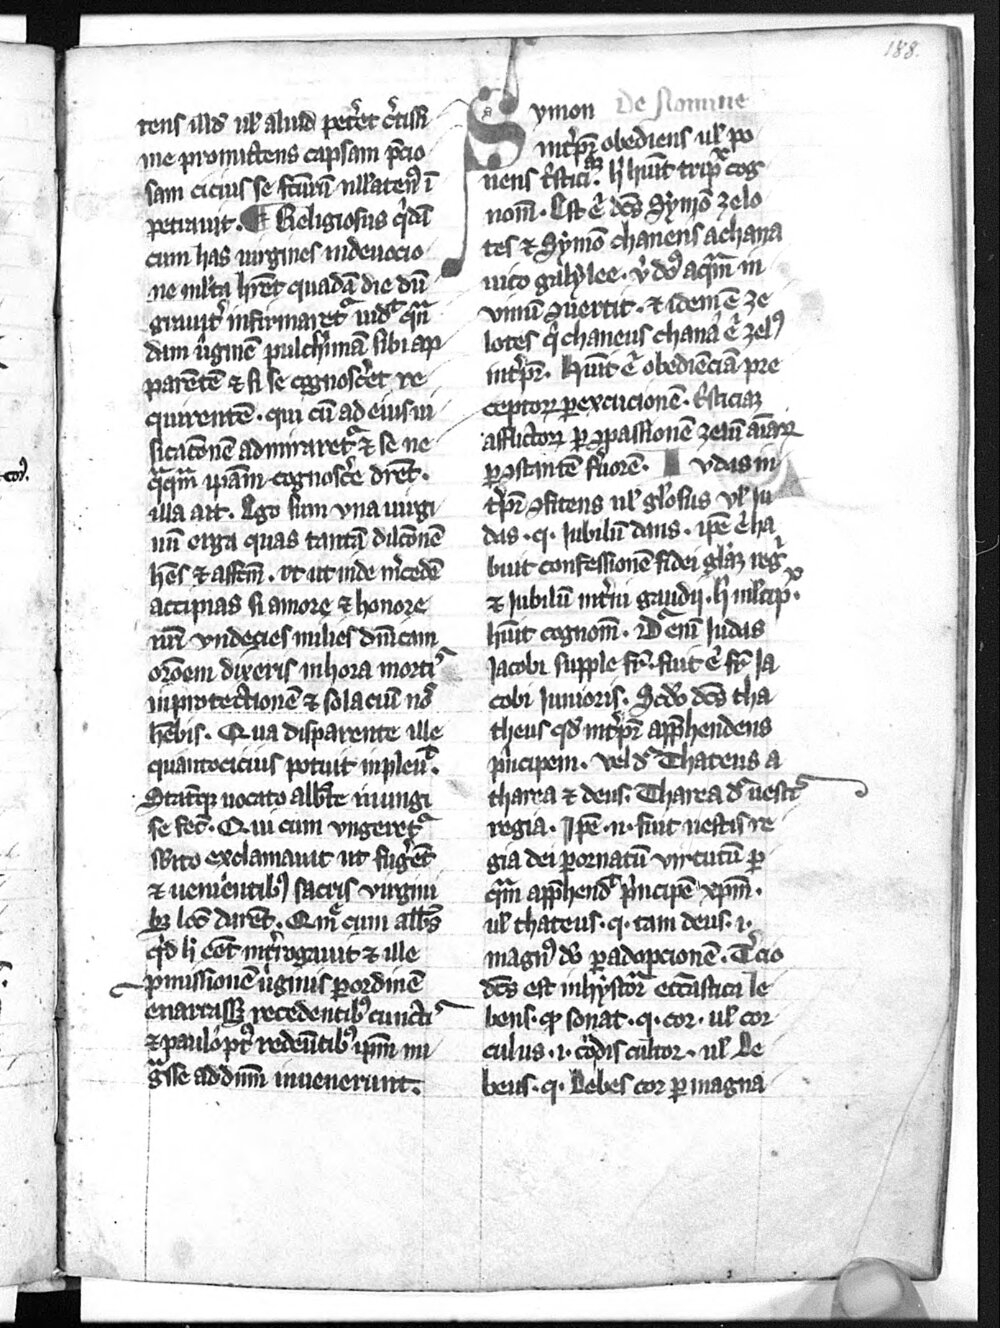 188.
tens illd ul aliud pet̉et c̉tissi
me promittens capsam p̄cio
sam cicius se sc̄turū nllaten⁹ ī
petiauit. ¶ Religiosus q̉dā
cum has uirgines indeuocio
ne ml̄ta hret̄ quadā die dū
grauit̉ infirmaret᷑ uidꝫ q̄dā
dam ûginē pulch̉imā sibi ap
parētē ⁊ si se cognosc̉et re
quirentē. qui cū ad eius ui
sitac̄onē admiraret᷑ ⁊ se ne
q̄qm̄ ip̄am cognosc̉e dr̄et.
illa ait. Ego sum vna uirgi
nū erga quas tantā dilc̄onē
hēs ⁊ affc̄m. vt ut inde m̉cedē
accipias si amore ⁊ honore
nr̄i vndecies milies dn̄icam
orōem dixeris in hora morti᷒
in protectionē ⁊ solaciū nō
hēbis. Qua disparente ille
quantocicius potuit inpleuꝫ.
Statiq̨ uocato albt̄e inungi
se fec̄. Qui cum vngeret᷑
s̄bito exclamauit ut fug̉ent̄
⁊ uenientib⁹ sacris virgini
bꝫ locū darēt. Qm̄ cum albs̄
q̉d h̄ eēt int̉rogauit ⁊ ille
p̄missionē ûginis ꝑ ordinē
enarrasꝫ recedentib⁹ cuncti᷒
⁊ paulo pꝰ redeūtib⁹ ip̄m mi
g̉sse ad dnm̄ inuenerunt.
De Nomine
Symon
int̉pr̄ obediens ul̄ po
nens t̉stici. h̄ huīt tripꝫ cog
nom̄. Est e̊ dc̄s Symō zelo
tes ⁊ Symō chanens a chana
uico galylee. v̊ do⁹ aquā in
vinū ꝯuertit. ⁊ idem ē ze
lotes q̉ chaneus chana e̊ zel⁹
int̉pr̄. Huīt e̊ obedienciā pre
ceptoꝝ ꝑ excucionē. t̉sticiaꝫ
afflictoꝝ ꝑ ꝯpassionē zelū aīaꝝ
ꝑ ꝯstantē f̉uorē. Iudas in
t̉pr̄ ꝯfitens ul̄ gl̄osus vl̄ iu
das. q. Iubilū dans. ip̄e e̊ ha
buit confessionē fidei gl̄aꝫ regⁱ
⁊ Iubilū int̉iu gaudij. h̄ ml̄tipꝫ.
huīt cognom̄. D̄r enī Iudas
Iacobi supple fr̄. fuit e̊ fr̄ Ia
cobi Iunioris. Scd̄o dc̄s tha
theus qd̄ int̉pr̄ app̄hendens
p̉ncipem. vel d᷑ Thateus a
tharea ⁊ deus. Tharea d᷑ uesti᷒
regia. Ip̄e .n. fuit uestis re
gia dei ꝑ ornatū virtutū ꝑ
quā app̄hendꝫ p̉ncipē xp̄m.
ul̄ thateus. q. tam deus. i.
magn⁹ ds̄ ꝑ adopcionē. T̉cio
dc̄s est in hystor̄ ecc̄astica le
beus. qꝫ sonat. q. cor. ul̄ cor
culus. i. c̊dis cultor. ul̄ Le
beus. q. Lebes cor ꝑ magna